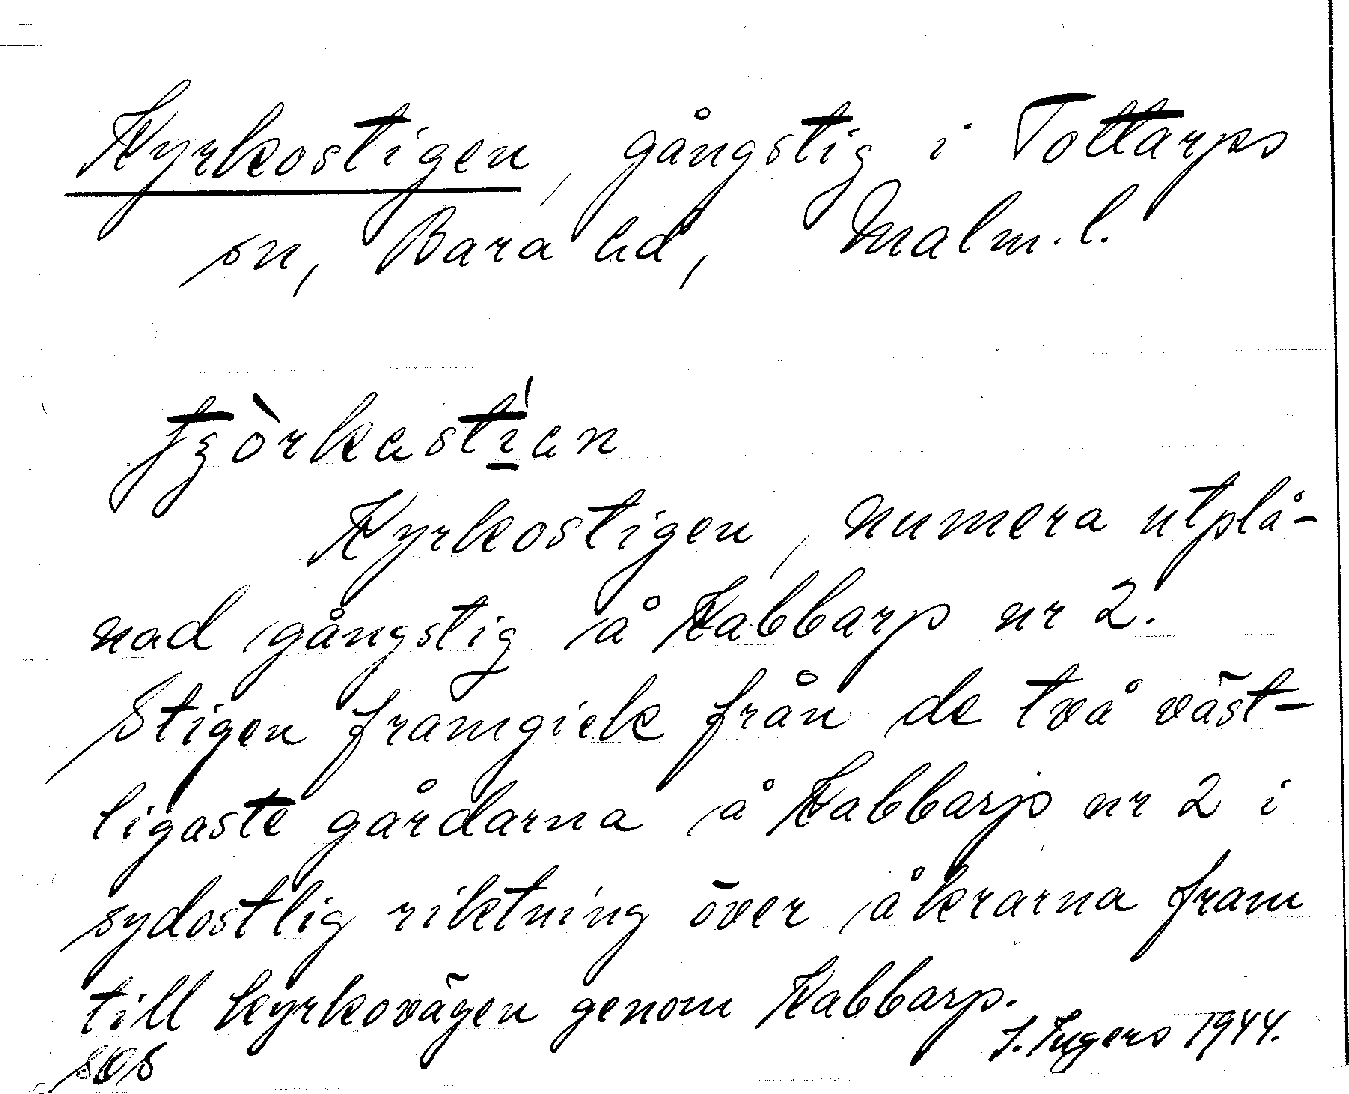 Kyrkostigen, gångstig i Tottarps
sn, Bara hd, Malm. l.
Kyrkostigen, numera utplå-
nad gångstig å Kabbarp nr 2.
Stigen framgick från de två väst-
ligaste gårdarna å Kabbarp nr 2 i
sydostlig riktning över åkrarna fram
till kyrkovägen genom Kabbarp.
I. Ingers 1944.